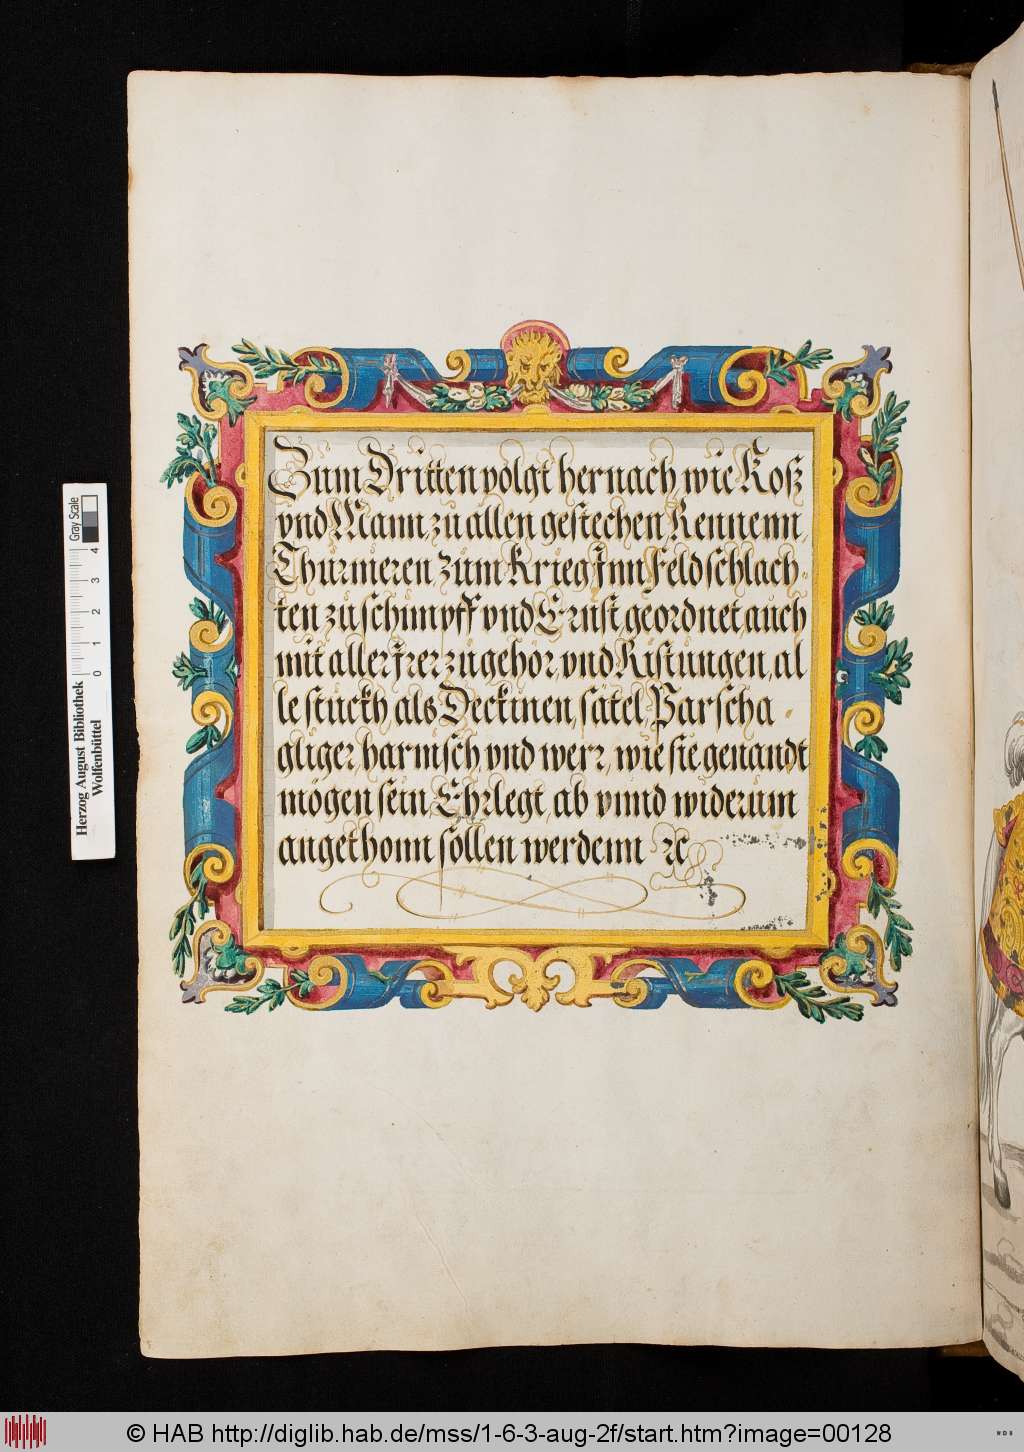 Zum Dritten volgt hernach wie Roß
vnd Mann, zu allen gestechen Rennenn,
Thurnieren zum Krieg Inn Feldschlach-
ten zu schimpff vnd Ernst geordnet, auch
mit aller Irer zugehör, vnd Ristungen, al
le stückh als Deckinen, sätel, Parscha
gliger, harnisch, vnd werr, wie sie genandt
mögen sein, Ehrlegt, ab vnnd widerum
angethonn söllen werdenn ꝛc
Herzog August Bibliothek
Wolfenbüttel
0 1 2 3 4
Gray Scale
© HAB http://diglib.hab.de/mss/1-6-3-aug-2f/start.htm?image=00128